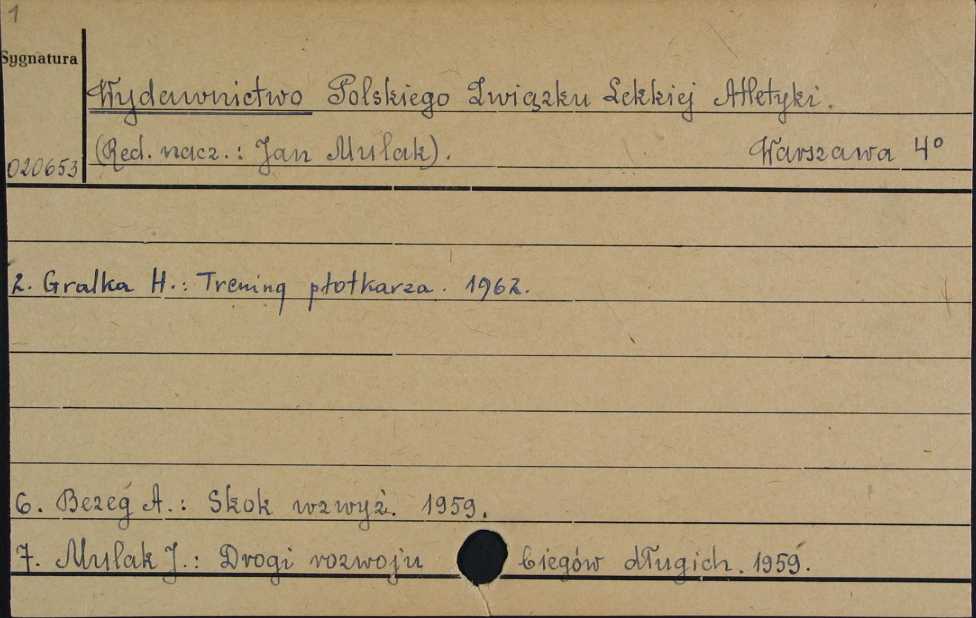 1
Sygnatura
Wydawnictwo Polskiego Związku Lekkiej Atletyki.
(Red. nacz.: Jan Mulak). Warszawa 4°
020653
2. Gralka H.: Trening płotkarza. 1962.
6. Bezeg A.: Skok wzwyż. 1959.
7. Mulak J.: Drogi rozwoju biegów długich. 1959.